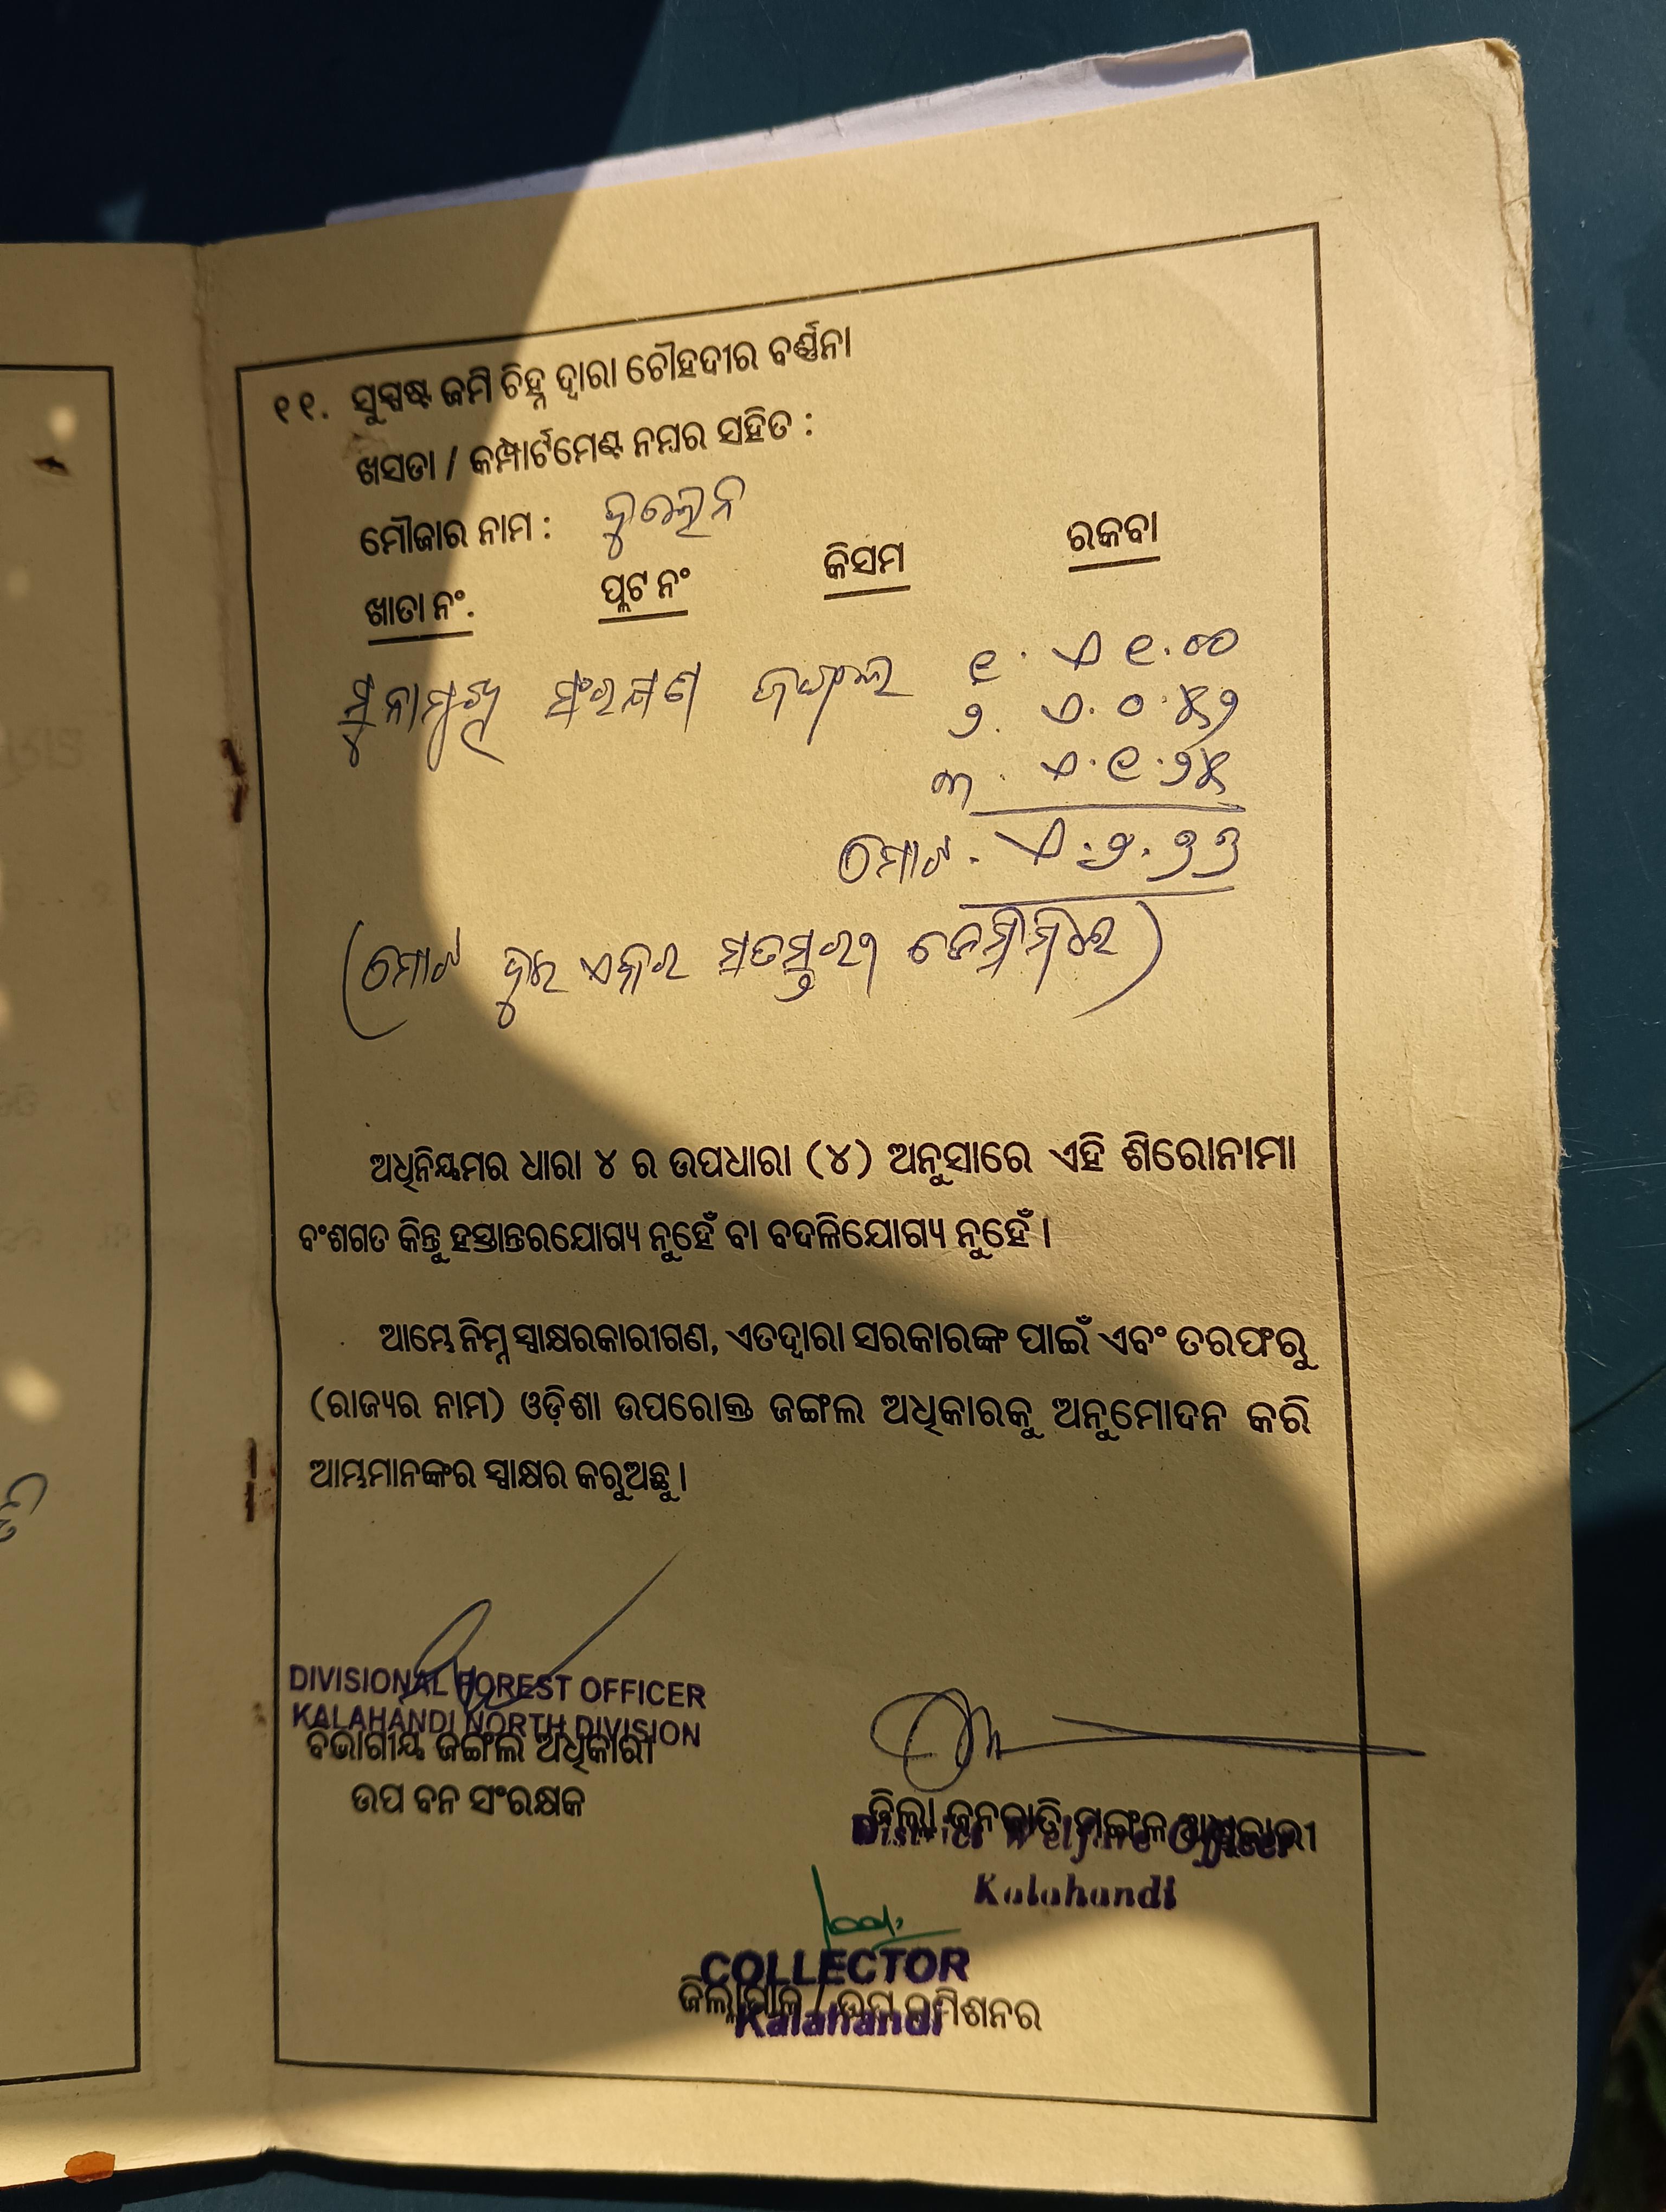 ୧୧. ସୁସ୍ପଷ୍ଟ ଜମି ଚିହ୍ନ ଦ୍ୱାରା ଚୌହଦୀର ବର୍ଣ୍ଣନା
ଖସଡା / କମ୍ପାର୍ଟମେଣ୍ଟ ନମ୍ବର ସହିତ :
ମୌଜାର ନାମ :
ଖାତା ନଂ. ପ୍ଲଟ ନଂ କିସମ ରକବା
ସଂରକ୍ଷଣ ଜଙ୍ଗଲ ୧. ଏ ୧.୦୦
୨. ଏ. ୦.୪୨
୩. ଏ.୧.୨୪
ମୋଟ. ଏ.୨.
(ମୋଟ ଦୁଇ ଏକର
ଅଧିନିୟମର ଧାରା ୪ ର ଉପଧାରା (୪) ଅନୁସାରେ ଏହି ଶିରୋନାମା
ବଂଶଗତ କିନ୍ତୁ ହସ୍ତାନ୍ତରଯୋଗ୍ୟ ନୁହେଁ ବା ବଦଳିଯୋଗ୍ୟ ନୁହେଁ ।
ଆମ୍ଭେ ନିମ୍ନ ସ୍ୱାକ୍ଷରକାରୀଗଣ, ଏତଦ୍ୱାରା ସରକାରଙ୍କ ପାଇଁ ଏବଂ ତରଫରୁ
(ରାଜ୍ୟର ନାମ) ଓଡ଼ିଶା ଉପରୋକ୍ତ ଜଙ୍ଗଲ ଅଧିକାରକୁ ଅନୁମୋଦନ କରି
ଆମ୍ଭମାନଙ୍କର ସ୍ୱାକ୍ଷର କରୁଅଛୁ ।
DIVISIONAL FOREST OFFICER
KALAHANDI NORTH DIVISION
ବିଭାଗୀୟ ଜଙ୍ଗଲ ଅଧିକାରୀ
ଉପ ବନ ସଂରକ୍ଷକ
ଜିଲ୍ଲା ଜନଜାତି ମଙ୍ଗଳ ଅଧିକାରୀ
District Welfare Officer
Kalahandi
COLLECTOR
ଜିଲ୍ଲାପାଳ / ଉପ କମିଶନର
Kalahandi